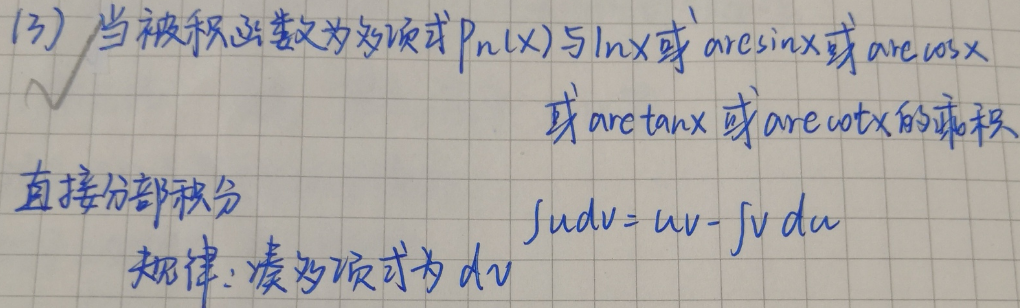 (3) 当被积函数为多项式Pn(x)与lnx或arcsinx或arccosx
或arctanx或arccotx的乘积
直接分部积分
∫udv=uv-∫vdu
规律:凑多项式为dv